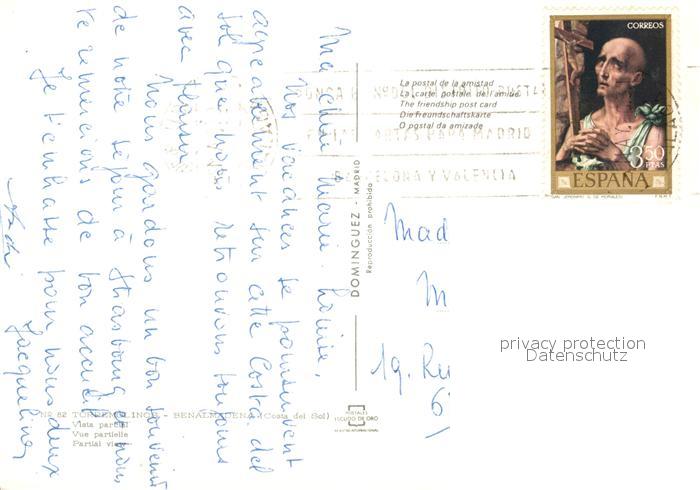 Ma chère Marie-Louise,
Nos vacances se poursuivent
agréablement sur cette Costa del
Sol que nous retrouvons toujours
avec plaisir.
Nous gardons un bon souvenir
de notre séjour à Strasbourg et nous
te remercions de bon accueil.
Je t'embrasse pour nous deux
Jacqueline
La postal de la amistad
La carte postale de l'amitié
The friendship post card
Die Freundschaftskarte
O postal da amizade
CORREOS
3,50
PTAS
ESPAÑA
SAN JERONIMO (L. DE MORALES)
F.N.M.T.
BARCELONA Y VALENCIA
DOMINGUEZ - MADRID
Reproducción prohibida
Mad
M
19. Ru
6
privacy protection
Datenschutz
Nº 82 TORREMOLINOS - BENALMADENA (Costa del Sol)
Vista parcial
Vue partielle
Partial view
POSTALES
ESCUDO DE ORO